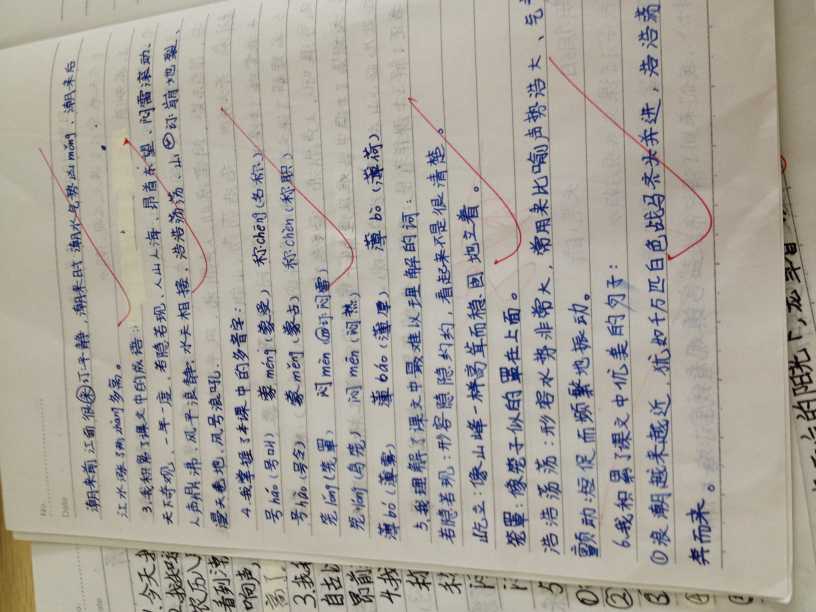 No.
Date
潮来前江面很平静,潮来时潮水气势凶měng,潮来后
江水涨了两zhàng多高。
3.我积累了课文中的成语:
天下奇观、一年一度、若隐若现、人山人海、昂首东望、闷雷滚动、
人声鼎沸、风平浪静、水天相接、浩浩荡荡、山崩地裂、
漫天卷地、风号浪吼.
4.我掌握了本课中的多音字:
号háo(号叫) 蒙méng(蒙受) 称chēng(名称)
号hào(号令) 蒙měng(蒙古) 称chèn(称职)
笼lǒng(笼罩) 闷mèn(闷雷)
笼lóng(鸟笼) 闷mēn(闷热)
薄bó(薄雾) 薄báo(薄厚) 薄bò(薄荷)
5.我理解了课文中最难以理解的词:
若隐若现:形容隐隐约约,看起来不是很清楚。
屹立:像山峰一样高耸而稳固地立着。
笼罩:像笼子似的罩在上面。
浩浩荡荡:形容水势非常大,常用来比喻声势浩大、气
颤动:短促而频繁地振动。
6.我积累了课文中优美的句子:
①浪潮越来越近,犹如千万匹白色战马齐头并进,浩浩荡
奔而来。
1.今天
农历八
看到
响声,
高了.
3.我
自古以
昂首
4.我
称
5
①
②
3
的阳光下,